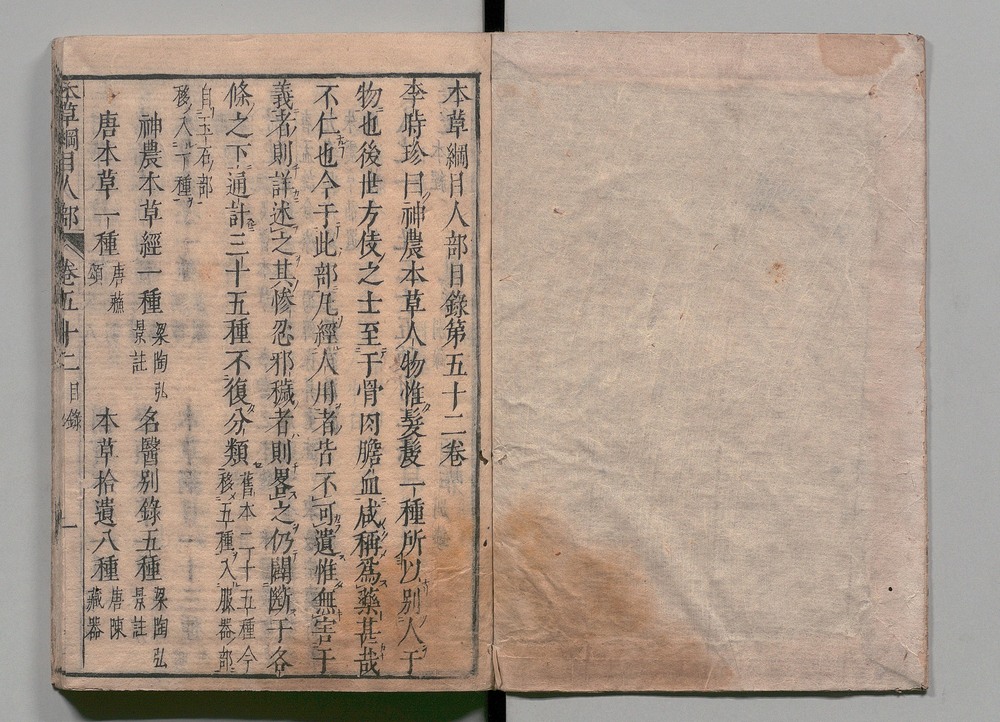 本草綱目人部目錄第五十二卷
李時珍曰神農本草人物惟髮髲一種所以別人于
物也後世方伎之士至于骨肉膽血咸稱為藥甚哉
不仁也今于此部凡經人用者皆不可遺惟無害于
義者則詳述之其慘忍邪穢者則畧之仍闢斷于各
條之下通計三十五種不復分類舊本二十五種今
移五種入服器部
自玉石部
移入一種
神農本草經一種梁陶弘
景註
名醫別錄五種梁陶弘
景註
唐本草一種唐蘇
頌
本草拾遺八種唐陳
藏器
本草綱目人部 卷五十二 目錄 一